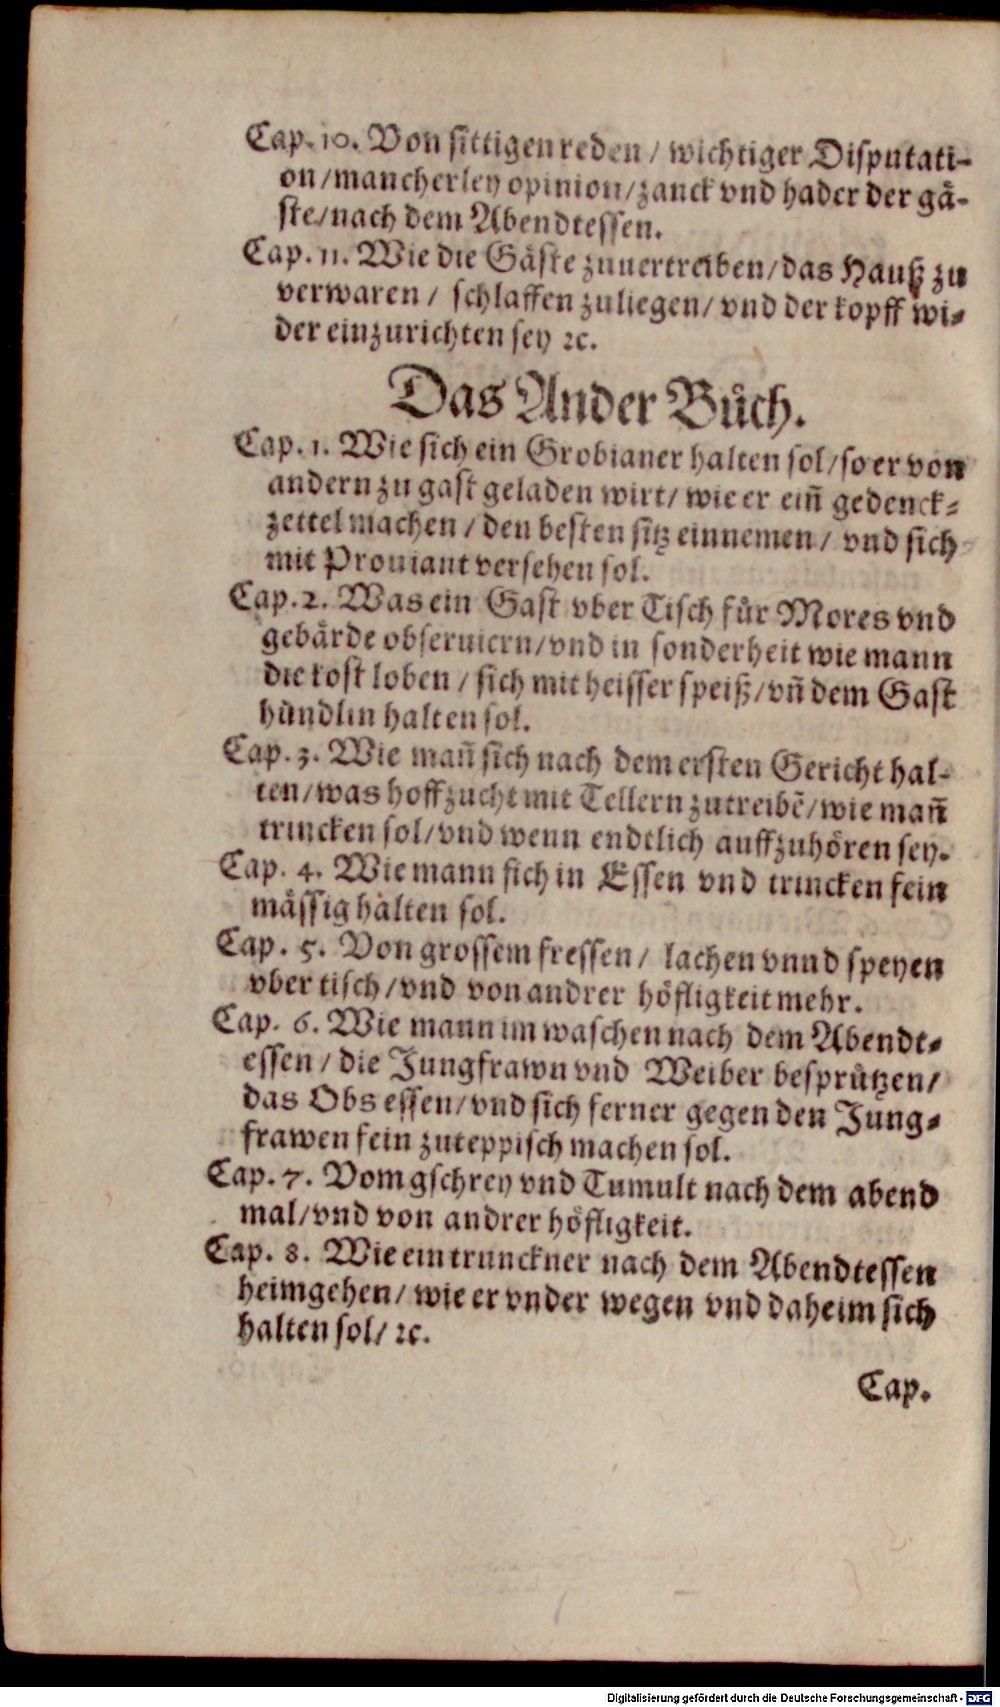 Cap. 10. Von sittigen reden / wichtiger Disputati-
on / mancherley opinion / zanck vnd hader der gå-
ste / nach dem Abendtessen.
Cap. 11. Wie die Gåste zuuertreiben / das Hauß zu
verwaren / schlaffen zuliegen / vnd der kopff wi-
der einzurichten sey ꝛc.
Das Ander Bůch.
Cap. 1. Wie sich ein Grobianer halten sol / so er von
andern zu gast geladen wirt / wie er ein̄ gedenck-
zettel machen / den besten sitz einnemen / vnd sich
mit Prouiant versehen sol.
Cap. 2. Was ein Gast vber Tisch fůr Mores vnd
gebårde obseruiern / vnd in sonderheit wie mann
die kost loben / sich mit heisser speiß / vn̄ dem Gast
hůndlin halten sol.
Cap. 3. Wie man̄ sich nach dem ersten Gericht hal-
ten / was hoffzucht mit Tellern zutreibē / wie man̄
trincken sol / vnd wenn endtlich auffzuhören sey.
Cap. 4. Wie mann sich in Essen vnd trincken fein
måssig halten sol.
Cap. 5. Von grossem fressen / lachen vnnd speyen
vber tisch / vnd von andrer höfligkeit mehr.
Cap. 6. Wie mann im waschen nach dem Abendt-
essen / die Jungfrawn vnd Weiber besprůtzen /
das Obs essen / vnd sich ferner gegen den Jung-
frawen fein zuteppisch machen sol.
Cap. 7. Vom gschrey vnd Tumult nach dem abend
mal / vnd von andrer höfligkeit.
Cap. 8. Wie ein trunckner nach dem Abendtessen
heimgehen / wie er vnder wegen vnd daheim sich
halten sol / ꝛc.
Cap.
Digitalisierung gefördert durch die Deutsche Forschungsgemeinschaft - DFG